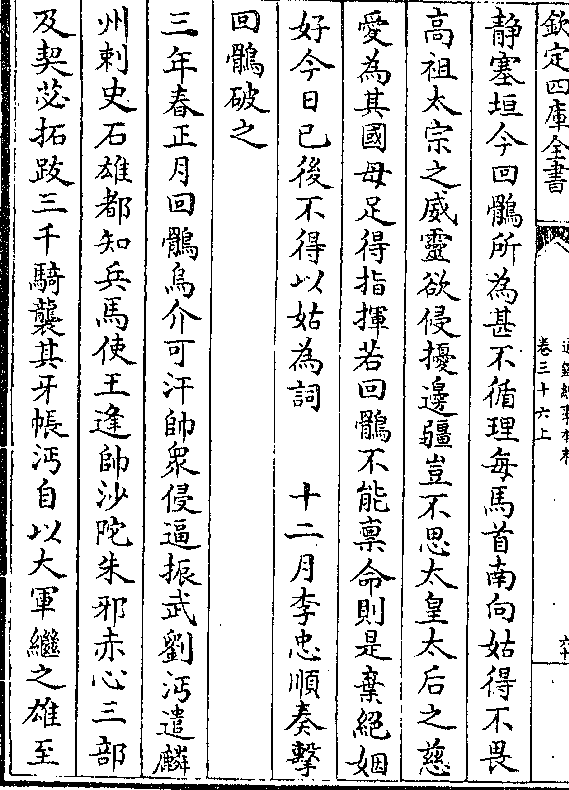 欽定四庫全書
卷三十六上
六十
静塞垣今回鶻所為甚不循理每馬首南向姑得不畏
高祖太宗之威靈欲侵擾邊疆豈不思太皇太后之慈
愛為其國母足得指揮若回鶻不能禀命則是棄絕姻
好今日已後不得以姑為詞　十二月李忠順奏擊
回鶻破之
三年春正月回鶻烏介可汗帥衆侵逼振武劉沔遣麟
州刺史石雄都知兵馬使王逢帥沙陀朱邪赤心三部
及契苾拓跋三千騎襲其牙帳沔自以大軍繼之雄至